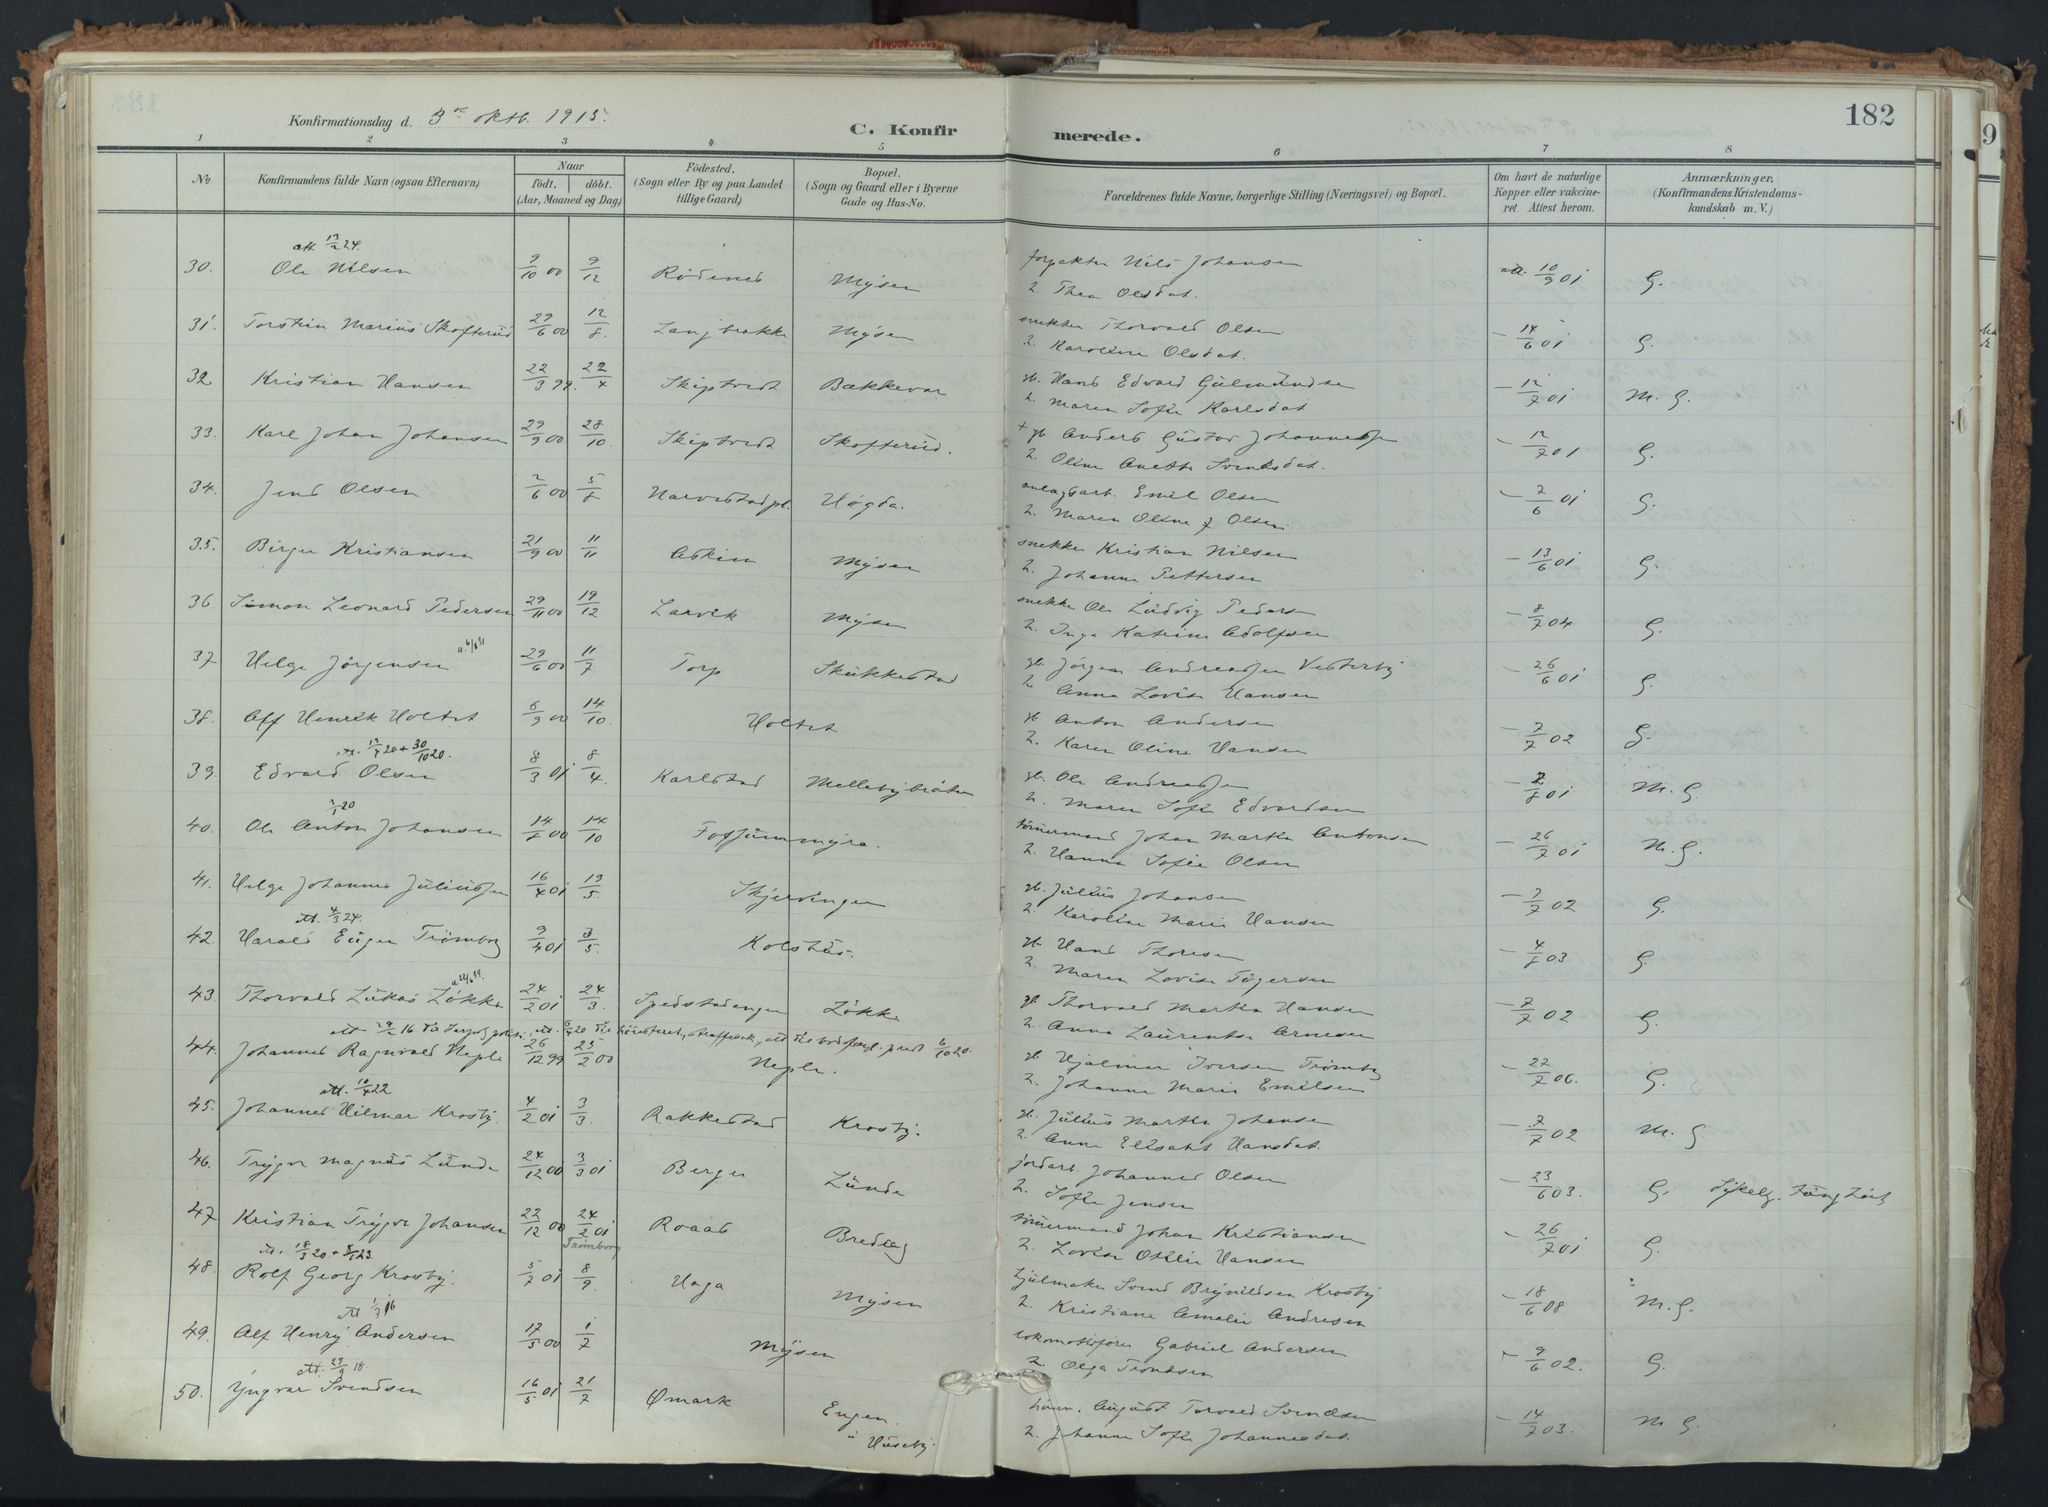 182
Konfirmationsdag d. 3die oktb. 1915.
C. Konfirmerede.
1 2 3 4 5 6 7 8
No
Konfirmandens fulde Navn (ogsaa Efternavn)
Naar
födt. döbt.
(Aar, Maaned og Dag)
Födested.
(Sogn eller By og paa Landet
tillige Gaard)
Bopæl.
(Sogn og Gaard eller i Byerne
Gade og Hus-No.
Forældrenes fulde Navne, borgerlige Stilling (Næringsvei) og Bopæl.
Om havt de naturlige
Kopper eller vakcine-
ret Attest herom.
Anmærkninger,
(Konfirmandens Kristendoms-
kundskab m. V.)
att. 13/2 24.
30. Ole Nilsen 9/10 00 9/12 Rødenes Mysen forpakter Nils Johansen att. 10/9 01 G.
2. Thea Olsdat.
31. Torstein Marius Skofterud 29/6 00 12/8. Langbrakke Mysen snekker Thorvald Olsen – 14/6 01 G.
2. Karoline Olsdat.
32 Kristian Hansen 22/3 99. 22/4 Skiptvedt Bækkevar gb. Hans Edvard Gulmundsen – 12/7 01 M. G.
2. Maren Sofie Karlsdat
33. Karl Johan Johansen 29/9 00 28/10. Skiptvedt Skofterud. + gb Anders Gustav Johannessen – 12/7 01 G.
2. Oline Anette Svendsdat.
34. Jens Olsen 2/6 00 5/8 Narvestadpl. Høgda. anlægsarb. Emil Olsen – 7/6 01 G.
2. Maren Oline J Olsen.
35. Birger Kristiansen 21/9 00 11/11 Askim Mysen snekker Kristian Nilsen – 13/6 01 G.
2. Johanne Pettersen
36. Simon Leonard Pedersen 29/11 00 19/12 Larvik Mysen snekker Ole Ludvig Pedersen – 8/7 04 G.
2. Inga Katrine Adolfsen
37 Helge Jørgensen a. 6/6 31 29/6 00 11/7. Torp Skukkestad gb. Jørgen Andreassen Vesterby – 26/6 01 G.
2 Anna Lovise Hansen
38. Alf Henrik Holtet 6/9 00 14/10. Holtet gb Anton Andersen – 7/7 02 G.
2. Karen Oline Hansen
att. 13/4 20 + 30/10 20.
39. Edvard Olsen 8/3 01 8/4. Karlstad Mellebybråten gb. Ole Andreassen – 2/8 01 M. G.
2. Maren Sofie Edvardsen
7/1 20
40. Ole Anton Johansen 14/8 00 14/10 Fossummyra. tømmermand Johan Martin Antonsen – 26/7 01 M. G.
2. Hanna Sofie Olsen
41. Helge Johannes Juliussen 16/4 01 19/5. Skjervingen gb. Julius Johansen – 7/7 02 G.
2. Karoline Marie Hansen
att. 4/3 24.
42. Harald Eugen Trømborg 9/4 01 3/5. Kolshus. gb. Hans Thoresen – 4/8 03 G.
2. Maren Lovise Tøgersen
43. Thorvald Lukas Løkke 24/2 01 24/3. Spedstadengen Løkke gb. Thorvald Martin Hansen – 7/7 02 G.
2. Anna Laurentse Arnesen
44. Johannes Ragnvald Neple 26/12 99 25/2 00 Neple. gb Hjalmar Iversen Trømborg – 27/7 06. G.
2. Johanne Marie Emilsen
att. 10/4 22
45. Johannes Hilmar Krosby. 4/2 01 3/3. Rakkestad Krosby. gb. Julius Martin Johansen – 7/7 02 M. G
2. Anne Elisabet Hansdat.
46. Trygve Magnus Lunde 24/12 00 3/3 01 Berger Lunde jordarb. Johannes Olsen – 23/6 03. G.
2. Sofie Jensen
47 Kristian Trygve Johansen 22/12 00 24/2 01 Roaas Bredeg tømmermand Johan Kristiansen – 26/7 01 G.
Trømborg
2. Lovise Otilie Hansen
48. Rolf Georg Krosby. 5/7 01 8/9. Haga Mysen hjulmaker Svend Brynildsen Krosby – 18/6 08 M. G.
2. Kristiane Amalie Andresen
49. Alf Henry Andersen 17/5 00 1/7 Mysen lokomotivfører Gabriel Andersen – 9/6 02. G.
2. Olga Trondsen
att. 29/9 18
50. Yngvar Svendsen 16/5 01 21/7 Ømark Engen. August Torvald Svendsen – 14/7 03. M G.
u Huseby. 2. Johanne Sofie Johannesdat.